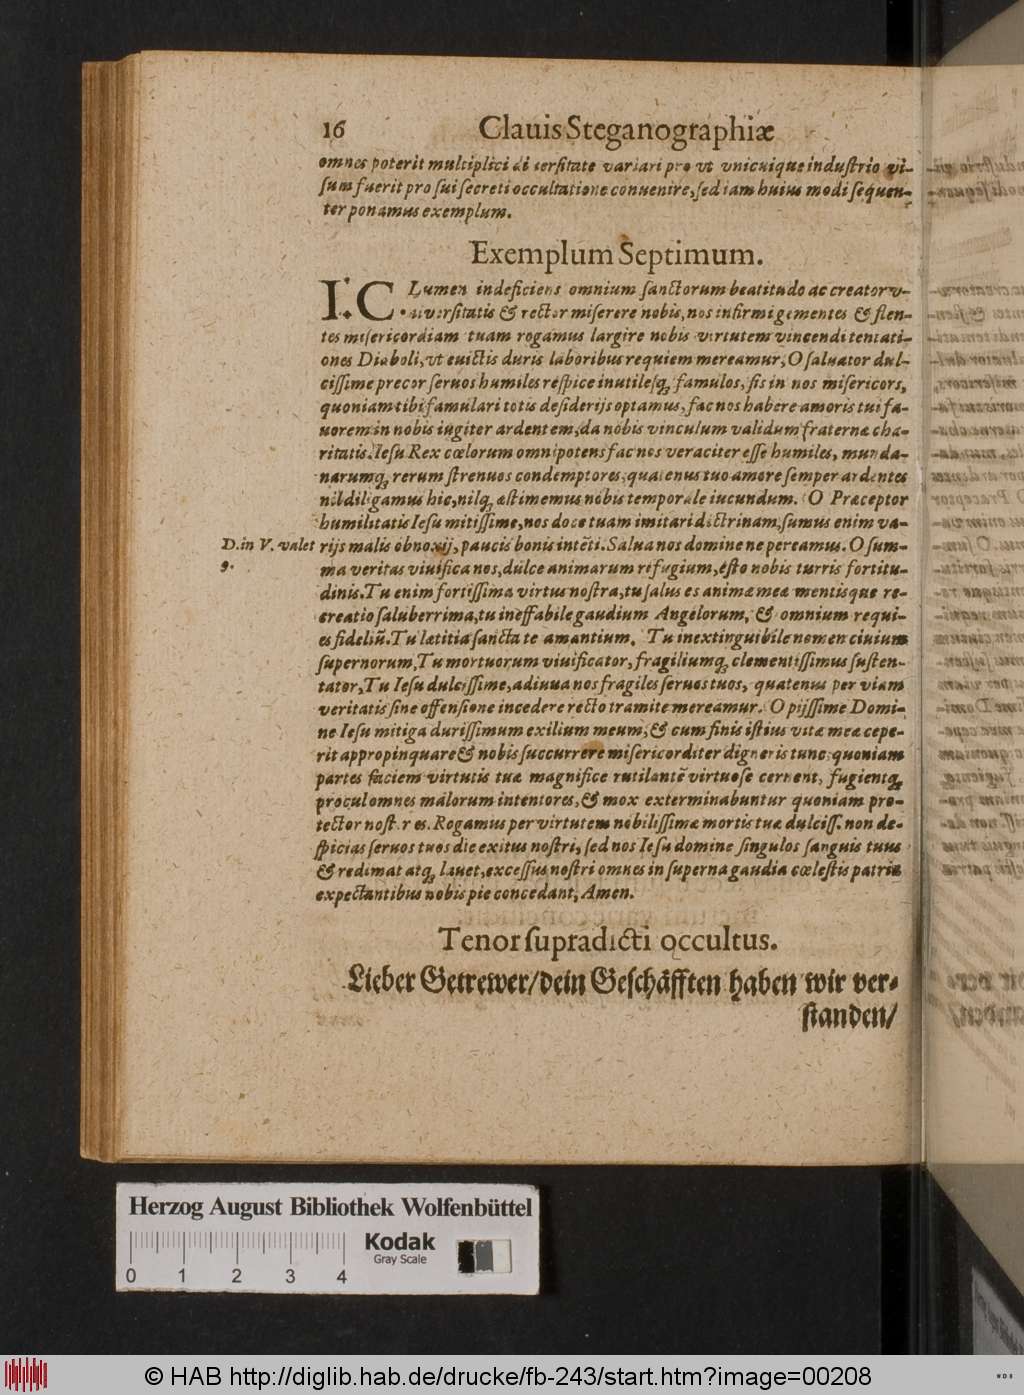 16 Clauis Steganographiæ
omnes poterit multiplici di uersitate variari pro vt vnicuique industrio vi-
sum fuerit pro sui secreti occultatione conuenire, sed iam huius modi sequen-
ter ponamus exemplum.
Exemplum Septimum.
I. C. Lumen indeficiens omnium sanctorum beatitudo ac creator v-
niuersitatis & rector miserere nobis, nos infirmi gementes & flen-
tes misericordiam tuam rogamus largire nobis virtutem vincendi tentati-
ones Diaboli, vt euictis duris laboribus requiem mereamur, O saluator dul-
cissime precor seruos humiles respice inutilesq; famulos, sis in nos misericors,
quoniam tibi famulari totis desiderijs optamus, fac nos habere amoris tui fa-
uorem in nobis iugiter ardentem, da nobis vinculum validum fraternæ cha-
ritatis. Iesu Rex cœlorum omnipotens fac nos veraciter esse humiles, munda-
narumq; rerum strenuos condemptores, quatenus tuo amore semper ardentes
nil diligamus hic, nilq; æstimemus nobis temporale iucundum. O Præceptor
humilitatis Iesu mitissime, nos doce tuam imitari doctrinam, sumus enim va-
D. in V. valet rijs malis obnoxij, paucis bonis intēti. Salua nos domine ne pereamus. O sum-
9. ma veritas viuifica nos, dulce animarum refugium, esto nobis turris fortitu-
dinis. Tu enim fortissima virtus nostra, tu salus es animæ meæ mentisque re-
creatio saluberrima, tu ineffabile gaudium Angelorum, & omnium requi-
es fideliū. Tu lætitia sancta te amantium. Tu inextinguibile nomen ciuium
supernorum, Tu mortuorum viuificator, fragiliumq; clementissimus susten-
tator, Tu Iesu dulcissime, adiuua nos fragiles seruos tuos, quatenus per viam
veritatis sine offensione incedere recto tramite mereamur. O pijssime Domi-
ne Iesu mitiga durissimum exilium meum, & cum finis istius vitæ meæ cepe-
rit appropinquare & nobis succurrere misericorditer digneris tunc quoniam
partes faciem virtutis tuæ magnifice rutilantē virtuose cernent, fugientq;
procul omnes malorum intentores, & mox exterminabuntur quoniam pro-
tector nost. r es. Rogamus per virtutem nobilissimæ mortis tuæ dulciss. non de-
spicias seruos tuos die exitus nostri, sed nos Iesu domine singulos sanguis tuus
& redimat atq; lauet, excessus nostri omnes in superna gaudia cœlestis patriæ
expectantibus nobis pie concedant, Amen.
Tenor supradicti occultus.
Lieber Getrewer/dein Geschäfften haben wir ver-
standen/
Herzog August Bibliothek Wolfenbüttel
Kodak
Gray Scale
0 1 2 3 4
© HAB http://diglib.hab.de/drucke/fb-243/start.htm?image=00208